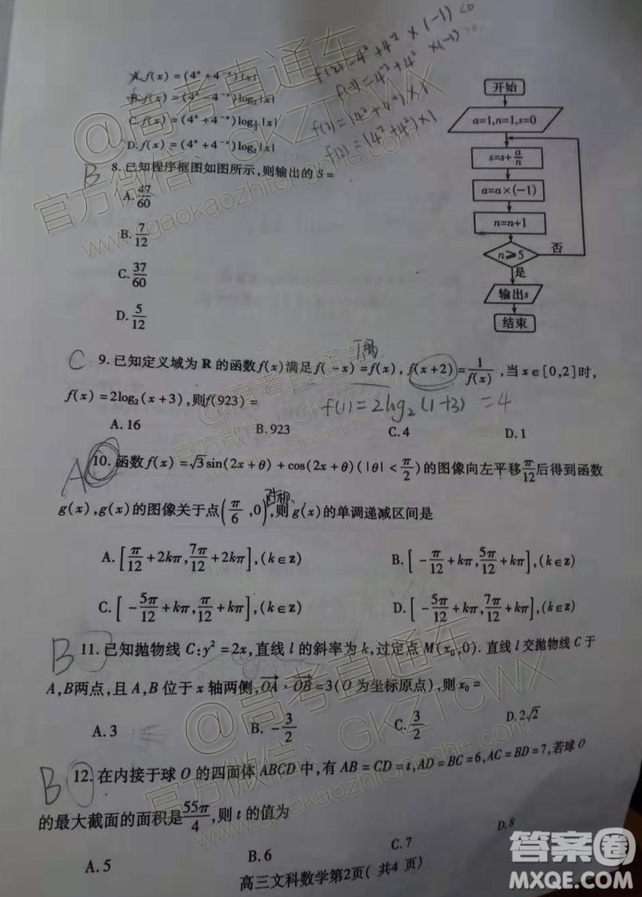 A. f(x) = (4ˣ + 4⁻ˣ)|x|
B. f(x) = (4ˣ - 4⁻ˣ)log₂|x|
C. f(x) = (4ˣ + 4⁻ˣ)log_{1/2}|x|
D. f(x) = (4ˣ + 4⁻ˣ)log₂|x|
B 8. 已知程序框图如图所示,则输出的 S =
A. 47/60
B. 7/12
C. 37/60
D. 5/12
开始
a=1,n=1,s=0
s=s+a/n
a=a×(-1)
n=n+1
n≥5
否
是
输出s
结束
C 9. 已知定义域为 R 的函数 f(x) 满足 f(-x) = f(x), f(x+2) = 1/f(x), 当 x∈[0,2] 时,
f(x) = 2log₂(x+3),则 f(923) =
f(1)=2log₂(1+3) =4
A. 16 B. 923 C. 4 D. 1
A 10. 函数 f(x) = √3sin(2x+θ) + cos(2x+θ)(|θ| < π/2) 的图像向左平移 π/12 后得到函数
g(x), g(x) 的图像关于点(π/6,0)对称,则 g(x) 的单调递减区间是
A. [π/12+2kπ, 7π/12+2kπ],(k∈z) B. [-π/12+kπ, 5π/12+kπ],(k∈z)
C. [-5π/12+kπ, π/12+kπ],(k∈z) D. [-π/12+kπ, 7π/12+kπ],(k∈z)
B 11. 已知抛物线 C:y²=2x,直线 l 的斜率为 k,过定点 M(x₀,0). 直线 l 交抛物线 C 于
A,B两点,且 A,B 位于 x 轴两侧,OA·OB=3(O 为坐标原点),则 x₀ =
A. 3 B. -3/2 C. 3/2 D. 2√2
B 12. 在内接于球 O 的四面体 ABCD 中,有 AB=CD=t,AD=BC=6,AC=BD=7,若球 O
的最大截面的面积是 55π/4,则 t 的值为
A. 5 B. 6 C. 7 D. 8
高三文科数学第2页( 共4 页)
@高考直通车
官方微信:GKZTCWX
www.gaokaozhitongche.com
答案圈
MXQE.COM